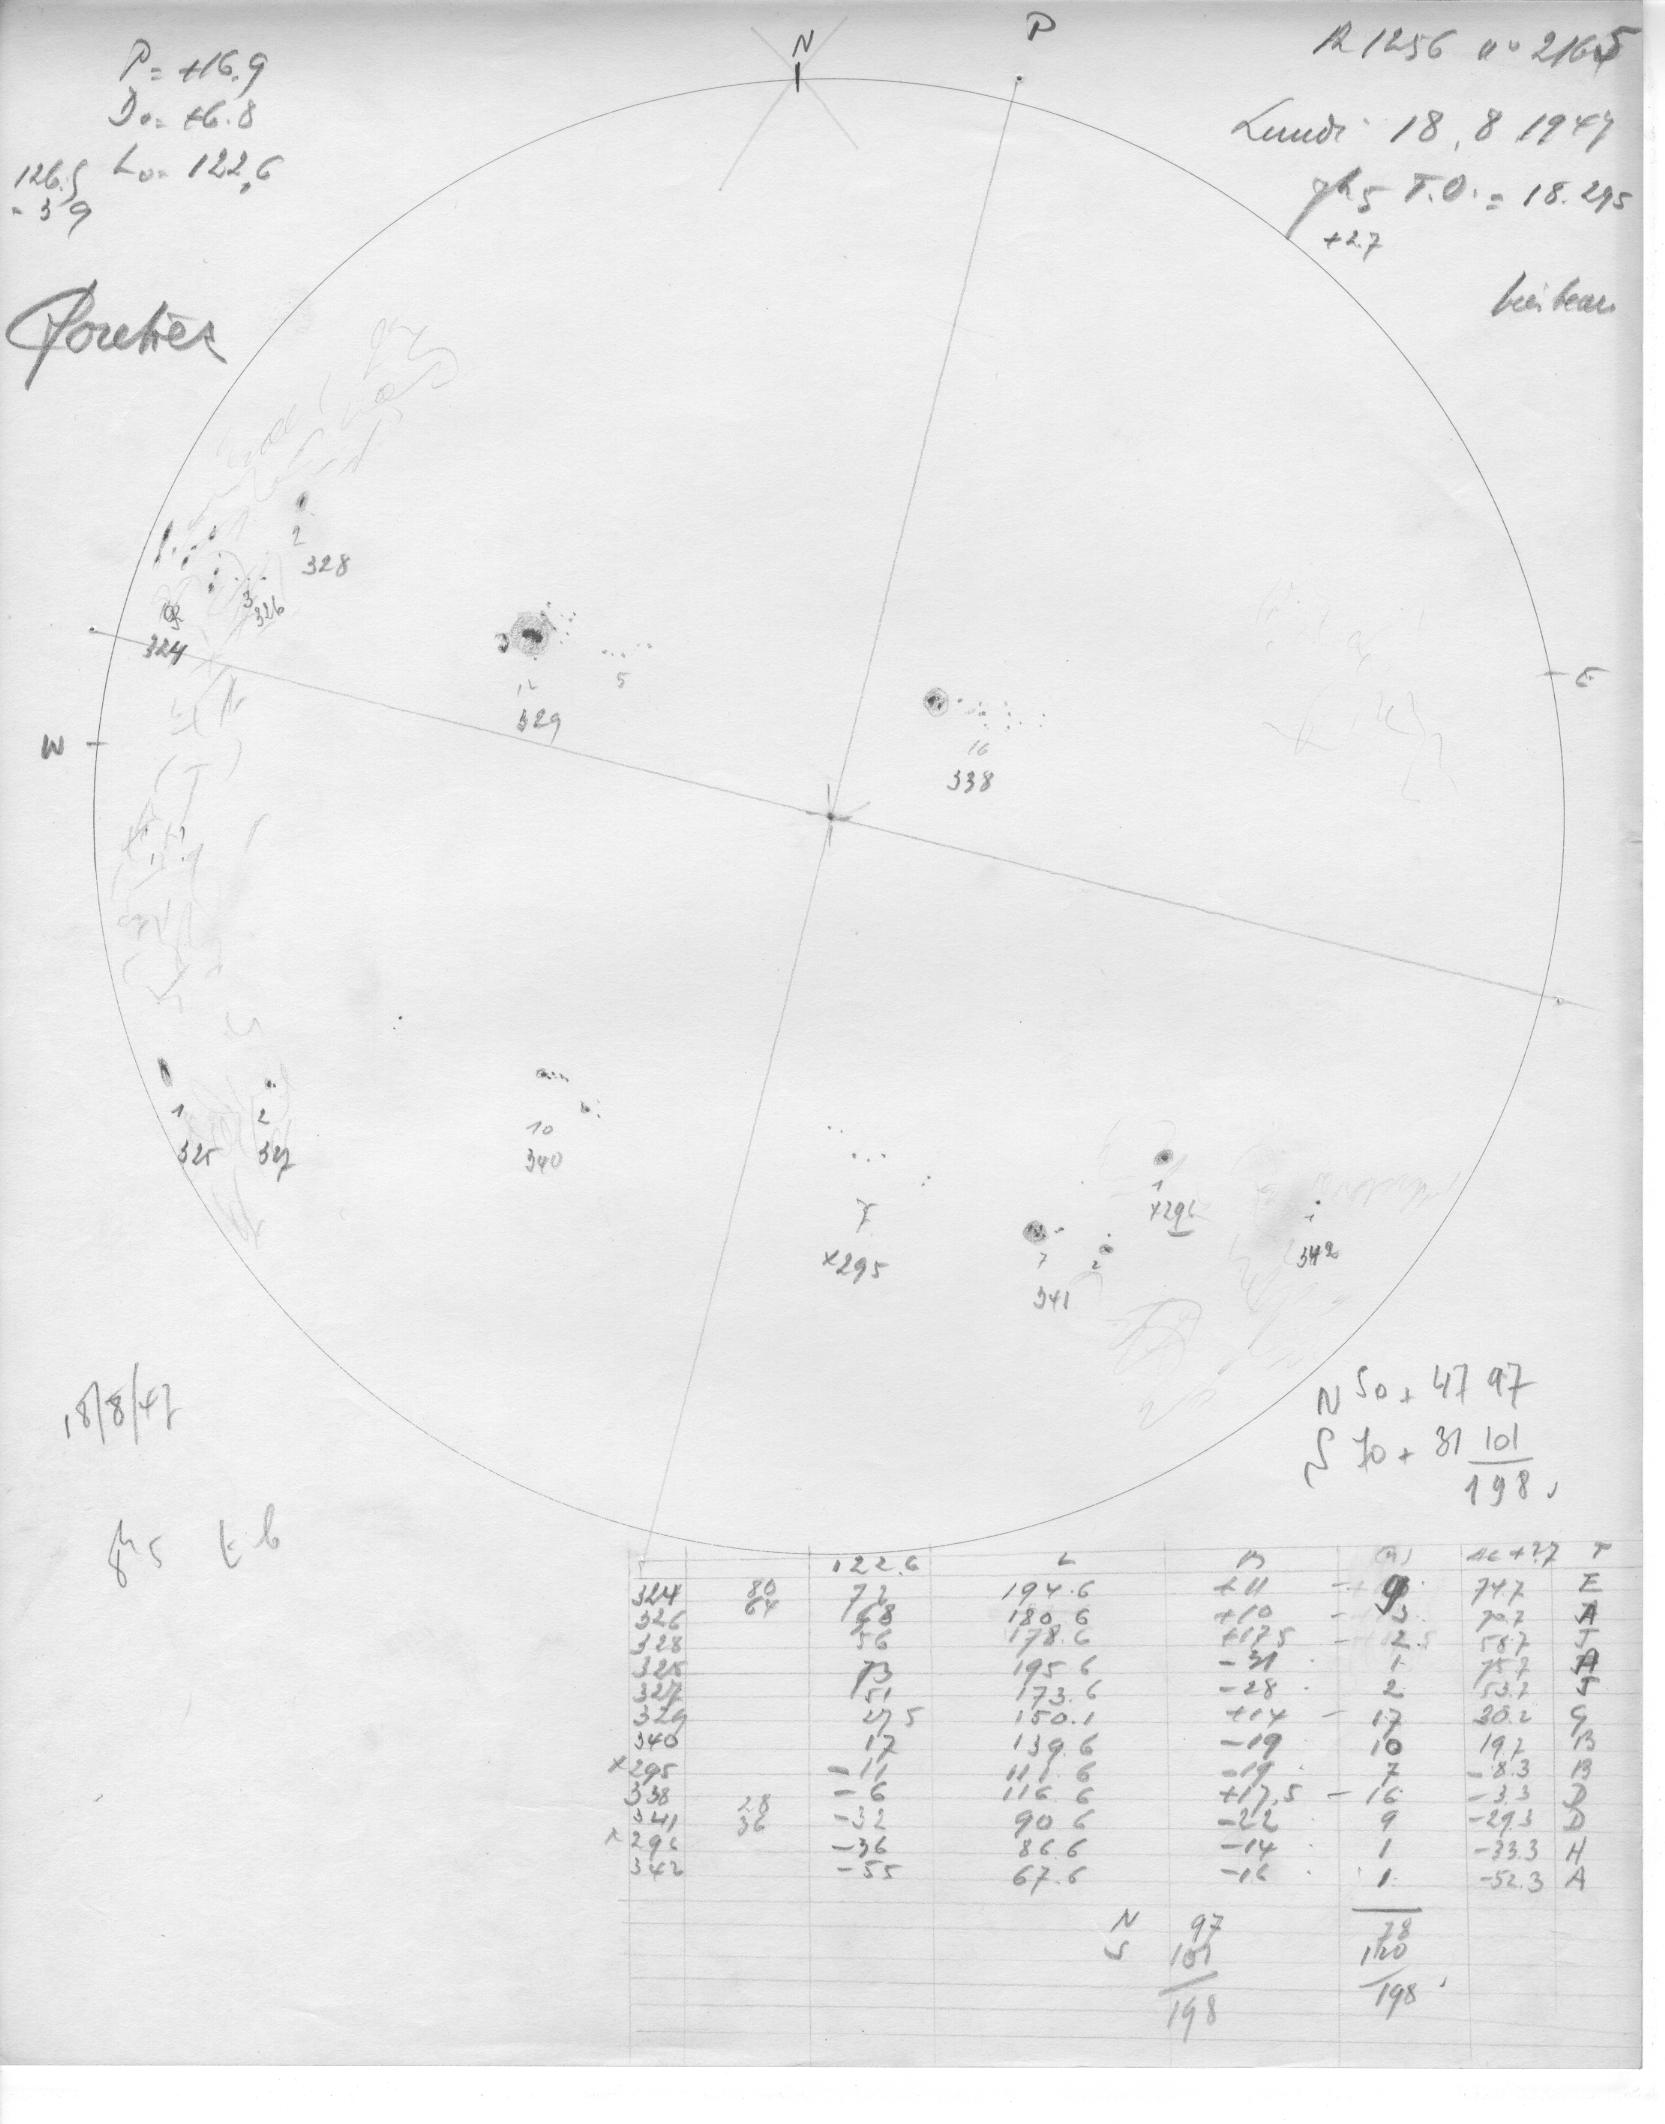 P = +16.9
D₀ = +6.8
L₀ = 122.6
126.5
- 3 9
N
P
R 1256 n° 2165
Lundi 18.8 1947
9h5 T.U. = 18.295
+2.7
très beau
2
328
3
326
324
5
12
329
16
338
W
E
1
325
2
327
10
340
7
×295
7
341
2
1
×296
1
342
18/8/47
N 50 + 47 97
S 70 + 31 101
198
8h5 tb
122.6 L B
324 80 64 72 194.6 +11 9 74.7 E
326 68 180.6 +10 3 70.7 A
328 56 178.6 +17.5 2 58.7 J
325 73 195.6 -31 1 75.7 A
327 51 173.6 -28 2 53.7 J
329 27 5 150.1 +14 17 30.2 G
340 17 139.6 -19 10 19.7 B
×295 -11 111.6 -19 7 -8.3 B
338 -6 116.6 +17.5 16 -3.3 D
341 28 36 -32 90 6 -22 9 -29.3 D
×296 -36 86.6 -14 1 -33.3 H
342 -55 67.6 -16 1 -52.3 A
N 97 78
S 101 120
198 198